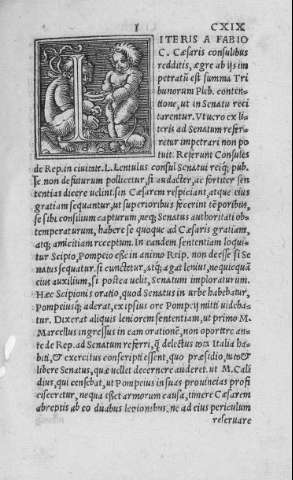 I CXIX
ITERIS A FABIO
C. Cæsaris consulibus
redditis, ægre ab ijs im
petratũ est summa Tri
bunorum Pleb. conten-
tione, ut in Senatu reci
tarentur. Vt uero ex li-
teris ad Senatum refer-
retur impetrari non po
tuit. Referunt Consules
de Rep. in ciuitate. L. Lentulus consul Senatui reiq; pub.
se non defuturum pollicetur, si audacter, ac fortiter sen-
tentias dicere uelint. sin Cæsarem respiciant, atque eius
gratiam sequantur, ut superioribus fecerint tẽporibus,
se sibi consilium capturum, neq; Senatus authoritati ob-
temperaturum, habere se quoque ad Cæsaris gratiam,
atq; amicitiam receptum. In eandem sententiam loqui-
tur Scipio, Pompeio esse in animo Reip. non de esse si Se
natus sequatur. si cunctetur, atq; agat lenius, ne quicquã
eius auxilium, si postea uelit, Senatum imploraturum.
Hæc Scipionis oratio, quod Senatus in urbe habebatur,
Pompeiusq; aderat, ex ipsius ore Pompeij mitti uideba-
tur. Dixerat aliquis leniorem sententiam, ut primo M.
Marcellus ingressus in eam orationẽ, non oportere an-
te de Rep. ad Senatum referri, q̃ delectus tota Italia ha-
biti, & exercitus conscripti essent, quo præsidio, tuto &
libere Senatus, quæ uellet decernere auderet. ut M. Cali
dius, qui censebat, ut Pompeius in suas prouincias profi
cisceretur, ne qua esset armorum causa, timere Cæsarem
abreptis ab eo duabus legionibus, ne ad eius periculum
reseruare